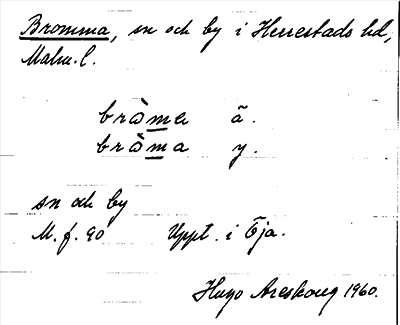 Bromma, sn och by i Herrestads hd,
Malm. l.
bràma ã.
bràma y.
sn och by
M. f. 90 Uppt. i Öja.
Hugo Areskoug 1960.